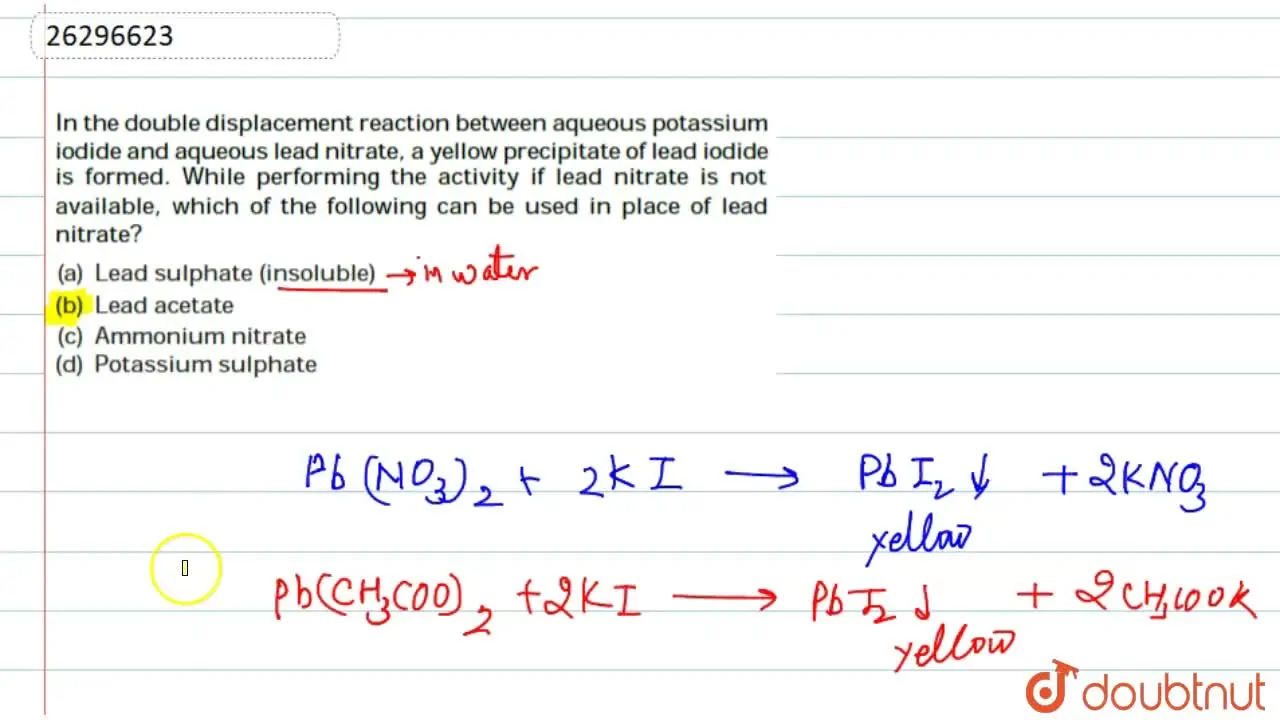 26296623
In the double displacement reaction between aqueous potassium
iodide and aqueous lead nitrate, a yellow precipitate of lead iodide
is formed. While performing the activity if lead nitrate is not
available, which of the following can be used in place of lead
nitrate?
(a) Lead sulphate (insoluble) → in water
(b) Lead acetate
(c) Ammonium nitrate
(d) Potassium sulphate
Pb(NO3)2 + 2KI → PbI2 ↓ + 2KNO3
yellow
Pb(CH3COO)2 + 2KI → PbI2 ↓ + 2CH3COOK
yellow
doubtnut